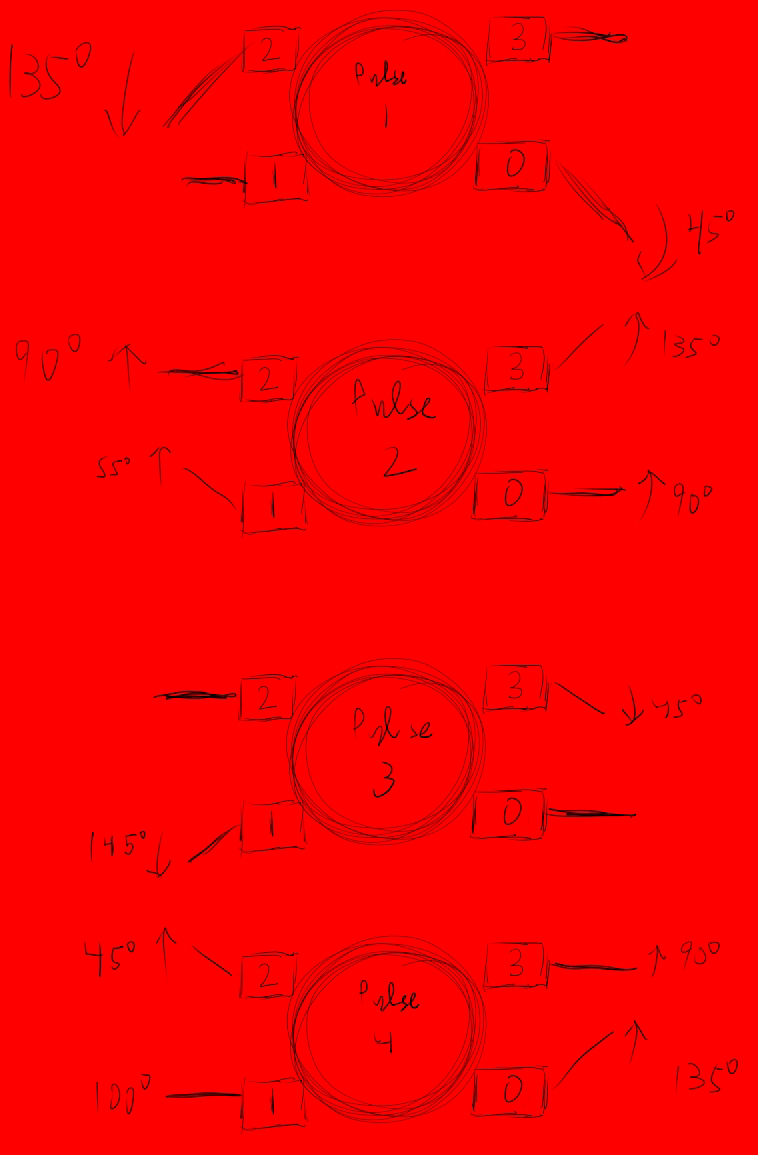 135° 2 Pulse 3
1
1 0 45°
90° 2 Pulse 3 135°
2
55° 1 0 90°
2 Pulse 3 45°
3
145° 1 0
45° 2 Pulse 3 90°
4
100° 1 0 135°